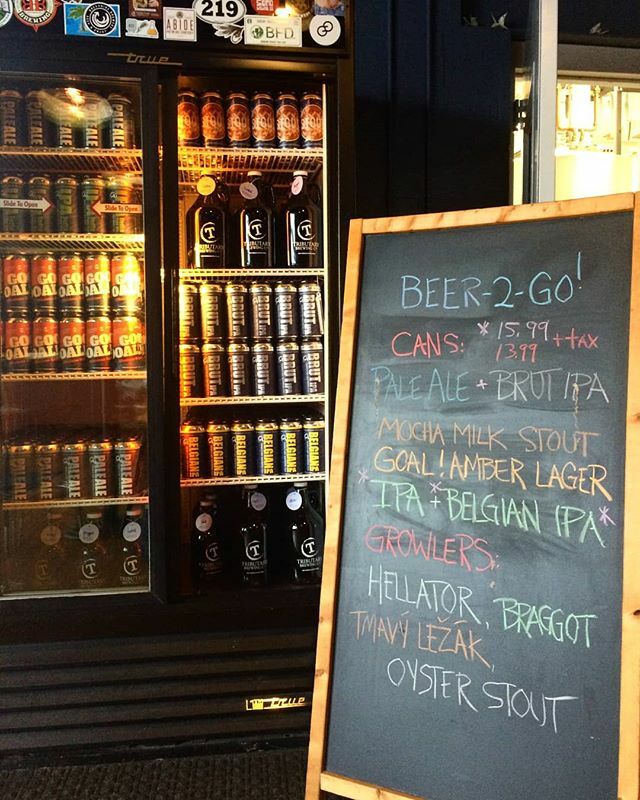 BREWING
219
ABIDE
BFD
true
PALE ALE
Slide To Open
Slide To Open
SEGAL
TRIBUTARY
BREWING CO.
GO
OAL!
BRUT IPA
BELGIAN E
PALE ALE
T
TRIBUTARY
BREWING CO.
true
BEER-2-GO!
CANS: *15.99
13.99 ++tax
PALE ALE + BRUT IPA
MOCHA MILK STOUT
GOAL! AMBER LAGER
*IPA*+BELGIAN IPA*
GROWLERS:
HELLATOR, BRAGGOT
TMAVÝ LEŽÁK,
OYSTER STOUT